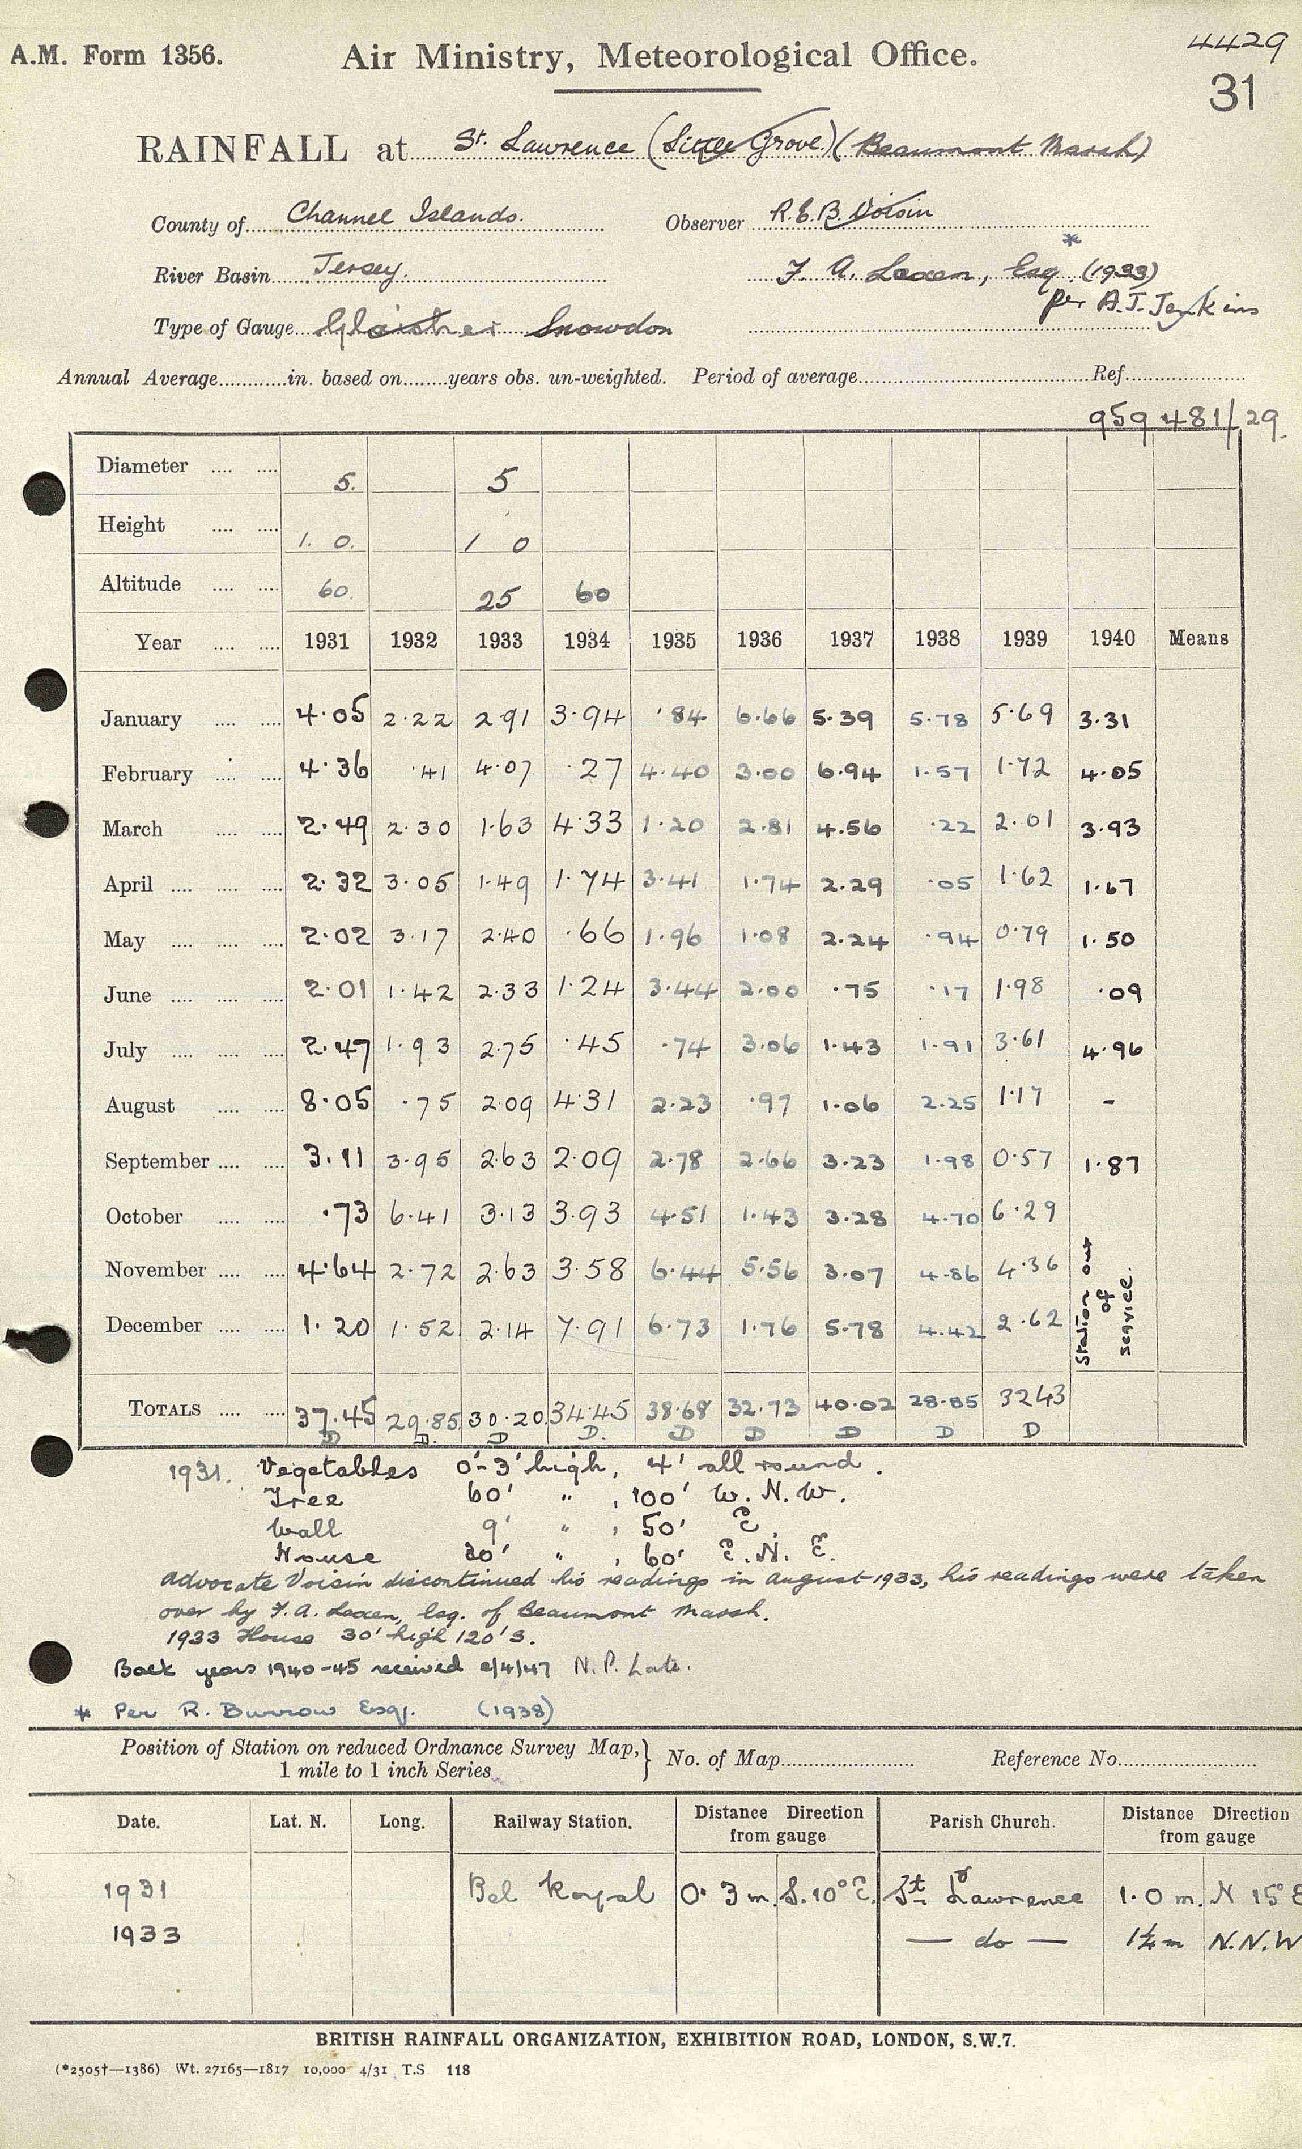 A.M. Form 1356.
Air Ministry, Meteorological Office.
4429
31
RAINFALL at St. Lawrence (Little Grove) (Beaumont Marsh)
County of Channel Islands. Observer R.E.B. Voisin
River Basin Jersey. F. A. Laxen, Esq (1933) *
per A.J. Jenkins
Type of Gauge Glaisher Snowdon
Annual Average in. based on years obs. un-weighted. Period of average Ref
959 481/29.
Diameter .... .... 5. 5
Height .... .... 1. 0. 1 0
Altitude .... .... 60. 25 60
Year .... .... 1931 1932 1933 1934 1935 1936 1937 1938 1939 1940 Means
January .... .... 4.05 2.22 2.91 3.94 .84 6.66 5.39 5.78 5.69 3.31
February .... .... 4.36 .41 4.07 .27 4.40 3.00 6.94 1.57 1.72 4.05
March .... .... 2.49 2.30 1.63 4.33 1.20 2.81 4.56 .22 2.01 3.93
April .... .... .... 2.32 3.05 1.49 1.74 3.41 1.74 2.29 .05 1.62 1.67
May .... .... .... 2.02 3.17 2.40 .66 1.96 1.08 2.24 .94 0.79 1.50
June .... .... .... 2.01 1.42 2.33 1.24 3.44 2.00 .75 .17 1.98 .09
July .... .... .... 2.47 1.93 2.75 .45 .74 3.06 1.43 1.91 3.61 4.96
August .... .... 8.05 .75 2.09 4.31 2.23 .97 1.06 2.25 1.17 -
September .... .... 3.11 3.95 2.63 2.09 2.78 2.66 3.23 1.98 0.57 1.87
October .... .... .73 6.41 3.13 3.93 4.51 1.43 3.28 4.70 6.29
November .... .... 4.64 2.72 2.63 3.58 6.44 5.56 3.07 4.86 4.36
December .... .... 1.20 1.52 2.14 7.91 6.73 1.76 5.78 4.42 2.62
Station out of service.
TOTALS .... .... 37.45 29.85 30.20 34.45 38.68 32.73 40.02 28.85 32.43
D D. D D. D D D D D
1931. Vegetables 0'-3' high, 4' all round.
Tree 60' " , 100' W. N. W.
Wall 9' " , 50' E.
House 30' " , 60' E. N. E.
Advocate Voisin discontinued his readings in August 1933, his readings were taken
over by F. A. Laxen, Esq. of Beaumont Marsh.
1933 House 30' high 120' S.
Back years 1940-45 received 2/4/47 N.P. Late.
* Per R. Burrow Esq. (1938)
Position of Station on reduced Ordnance Survey Map,} No. of Map Reference No.
1 mile to 1 inch Series
Date. Lat. N. Long. Railway Station. Distance Direction from gauge Parish Church. Distance Direction from gauge
1931 Bel Royal 0.3 m. S. 10° E. St Lawrence 1.0 m. N 15° E
1933 — do — 1¼ m N.N.W
BRITISH RAINFALL ORGANIZATION, EXHIBITION ROAD, LONDON, S.W.7.
(*2505†—1386) Wt. 27165—1817 10,000 4/31 T.S 118